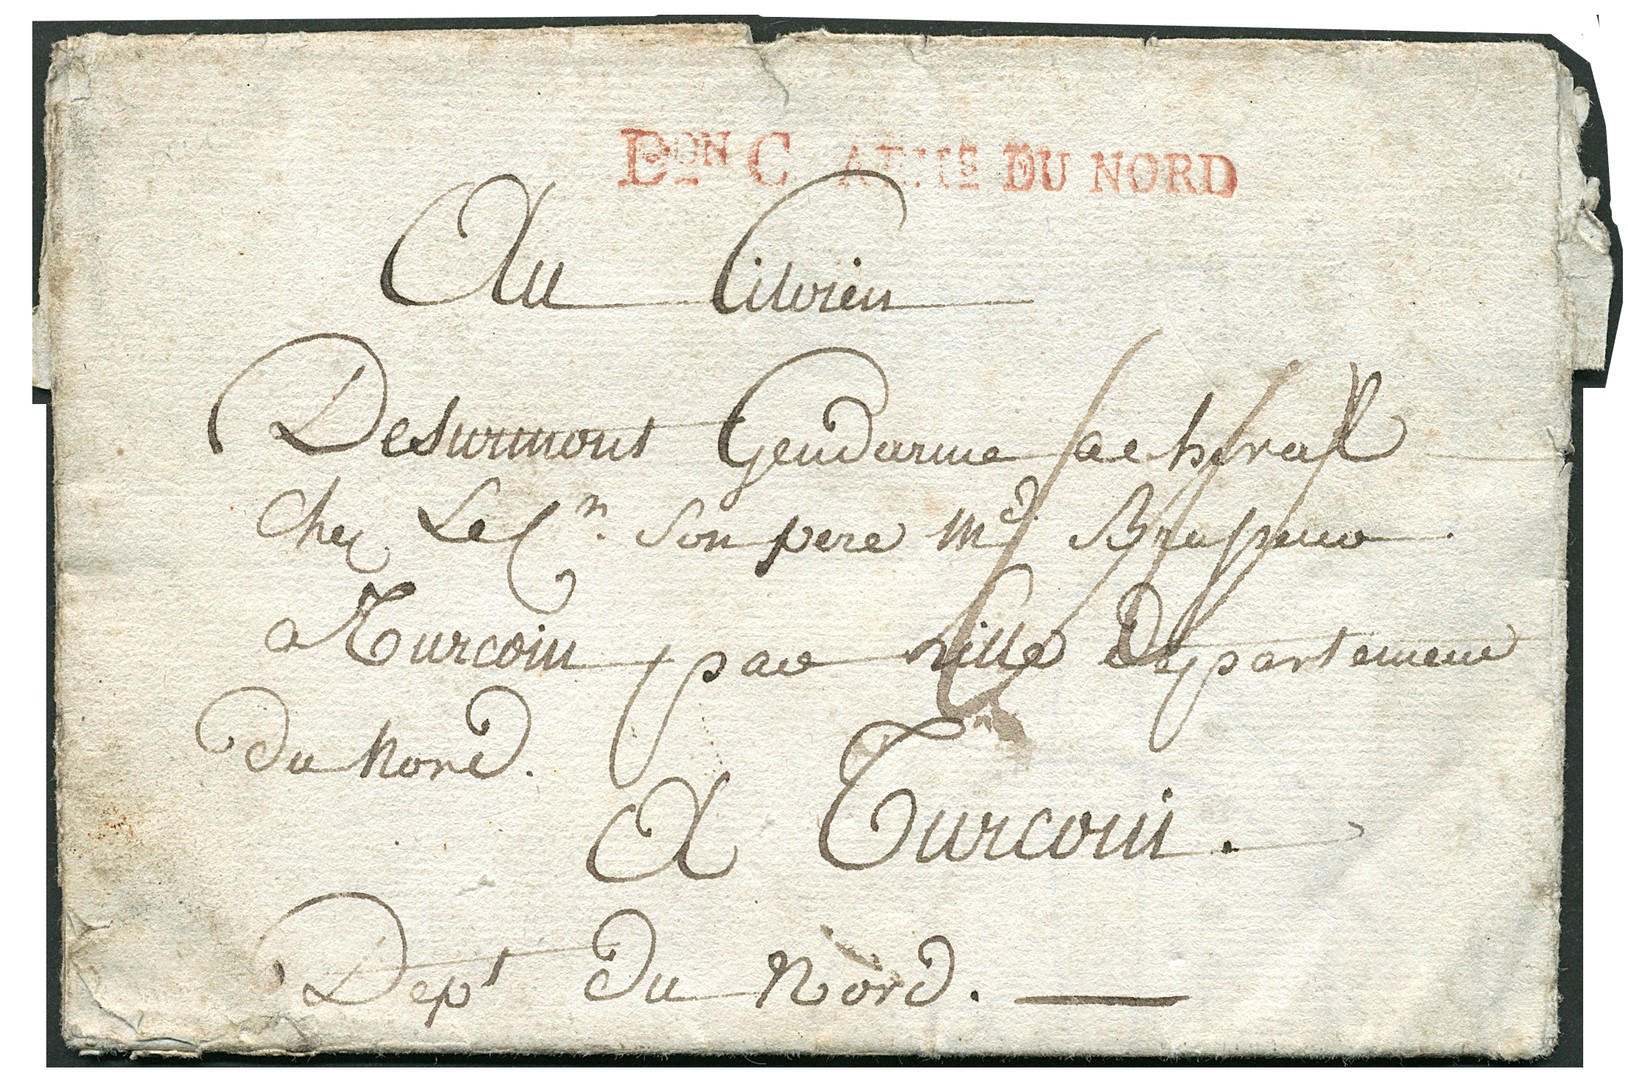 DON C ARMS DU NORD
Au Citoien
Desurmont Gendarme a cheval
chez Le Cn. Son pere Md Brasseur
a Turcoin par Lille Departement
du Nord.
A Turcoin.
Dept du Nord.